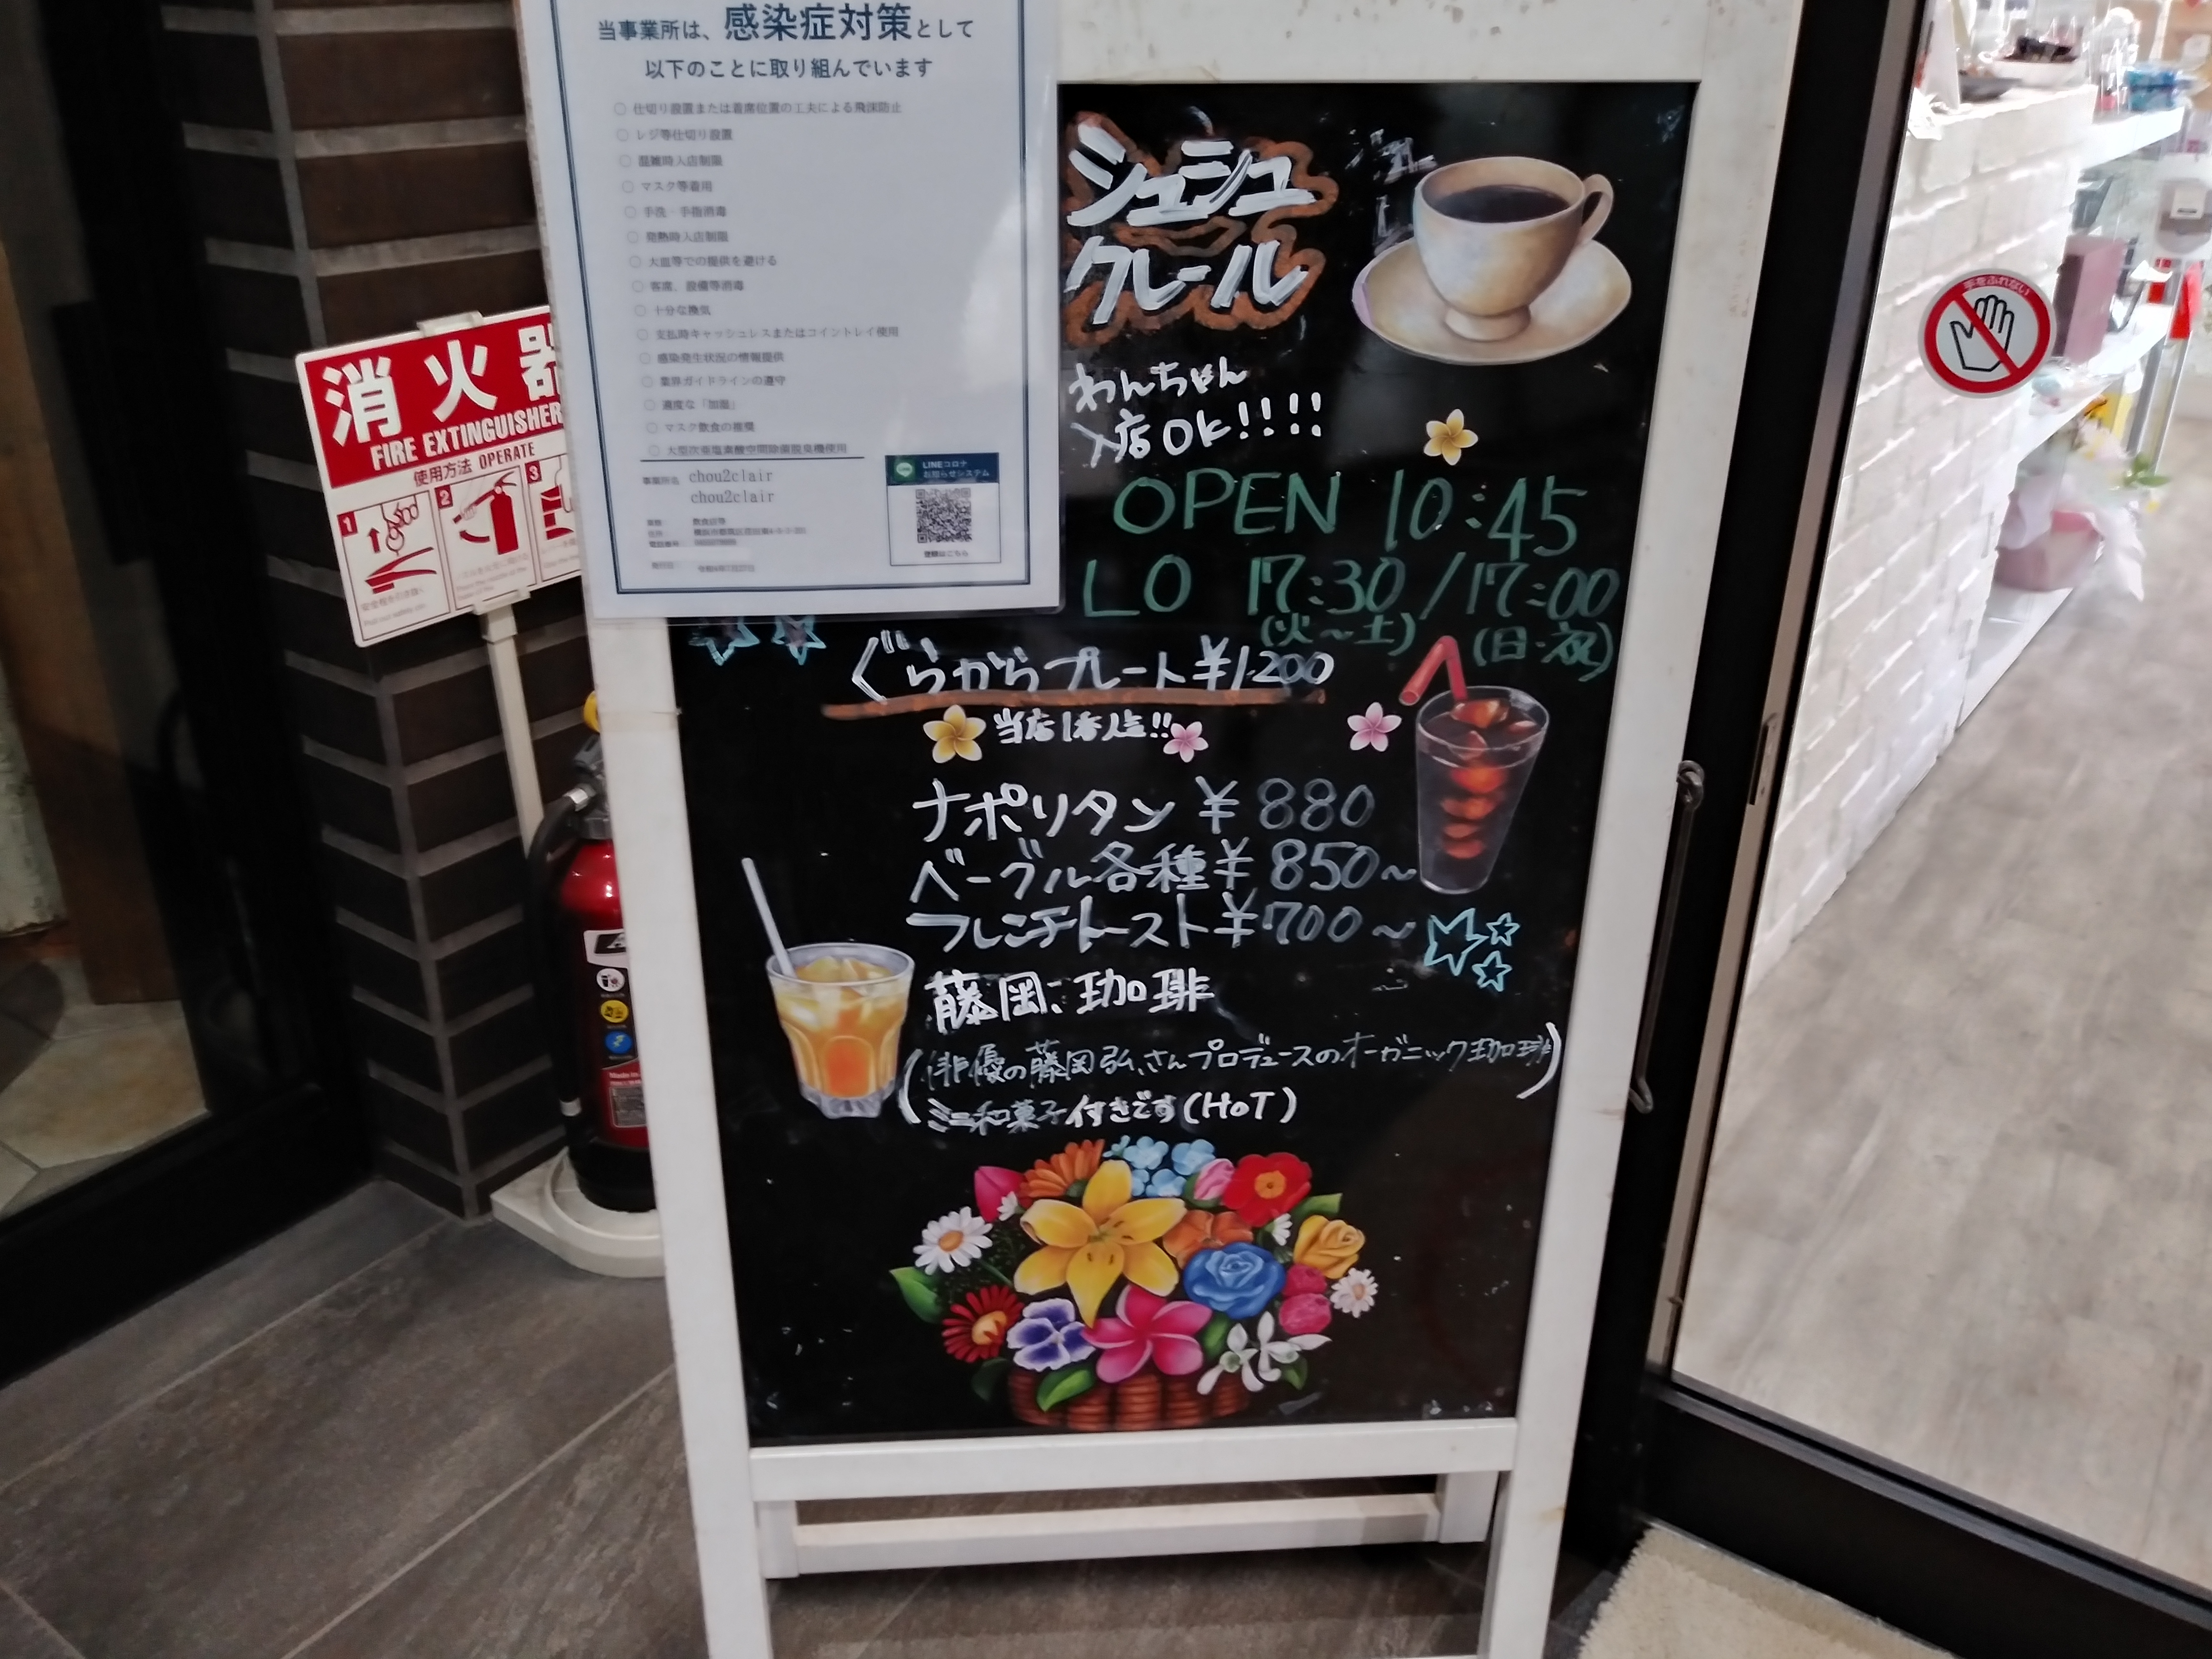 当事業所は、感染症対策として
以下のことに取り組んでいます
○ 仕切り設置または着席位置の工夫による飛沫防止
○ レジ等仕切り設置
○ 混雑時入店制限
○ マスク等着用
○ 手洗・手指消毒
○ 発熱時入店制限
○ 大皿等での提供を避ける
○ 客席、設備等消毒
○ 十分な換気
○ 支払時キャッシュレスまたはコイントレイ使用
○ 感染発生状況の情報提供
○ 業界ガイドラインの遵守
○ 適度な「加湿」
○ マスク飲食の推奨
○ 大型次亜塩素酸空間除菌脱臭機使用
事業所名 chou2clair
chou2clair
LINEコロナ
お知らせシステム
登録はこちら
シュシュ
クレール
わんちゃん
入店OK!!!!
OPEN 10:45
LO 17:30/17:00
(火~土) (日・祝)
ぐらからプレート¥1200
当店1番人気!!
ナポリタン ¥880
ベーグル各種¥850~
フレンチトースト¥700~
藤岡、珈琲
(俳優の藤岡弘、さんプロデュースのオーガニック珈琲)
ミニ和菓子付きです(HOT)
消火器
FIRE EXTINGUISHER
使用方法 OPERATE
1 2 3
手をふれない